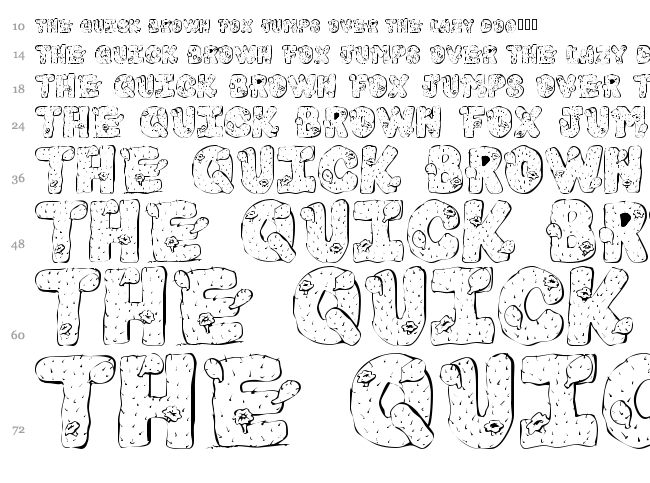 10 THE QUICK BROWN FOX JUMPS OVER THE LAZY DOG
14 THE QUICK BROWN FOX JUMPS OVER THE LAZY D
18 THE QUICK BROWN FOX JUMPS OVER T
24 THE QUICK BROWN FOX JUM
36 THE QUICK BROWN
48 THE QUICK BR
60 THE QUICK
72 THE QUIC